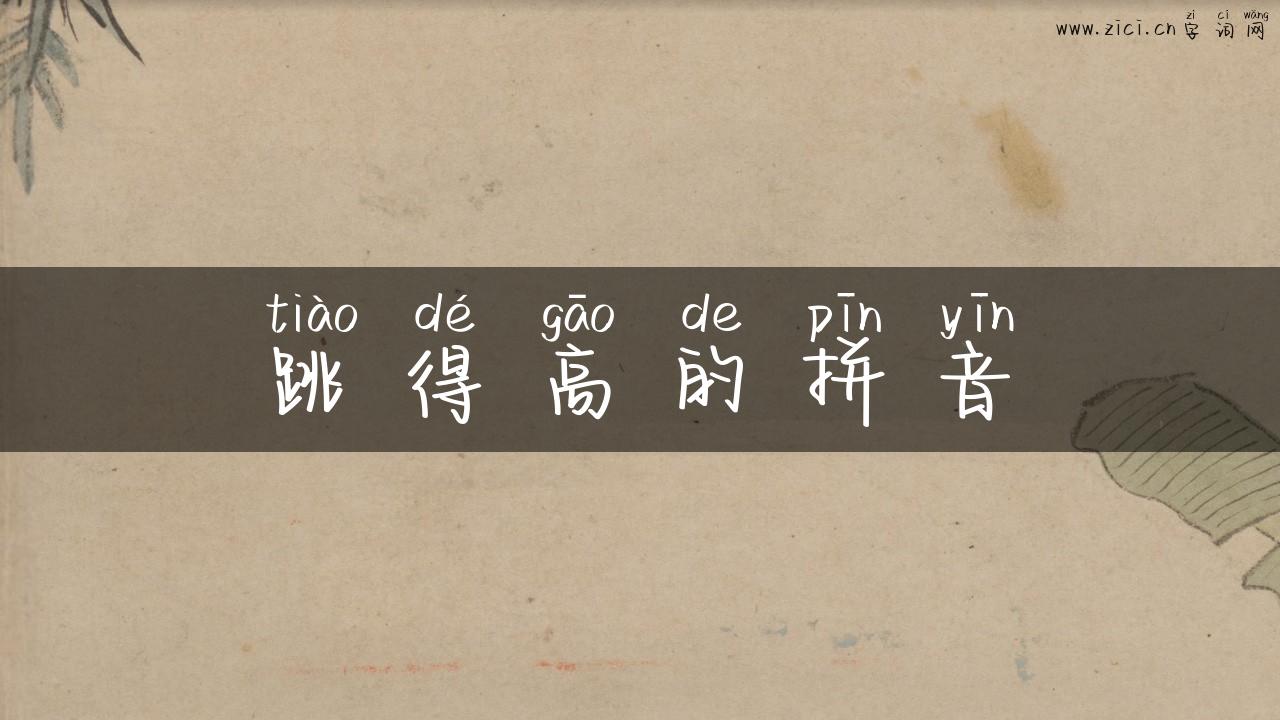 zì cí wǎng
www.zici.cn 字 词 网
tiào dé gāo de pīn yīn
跳 得 高 的 拼 音